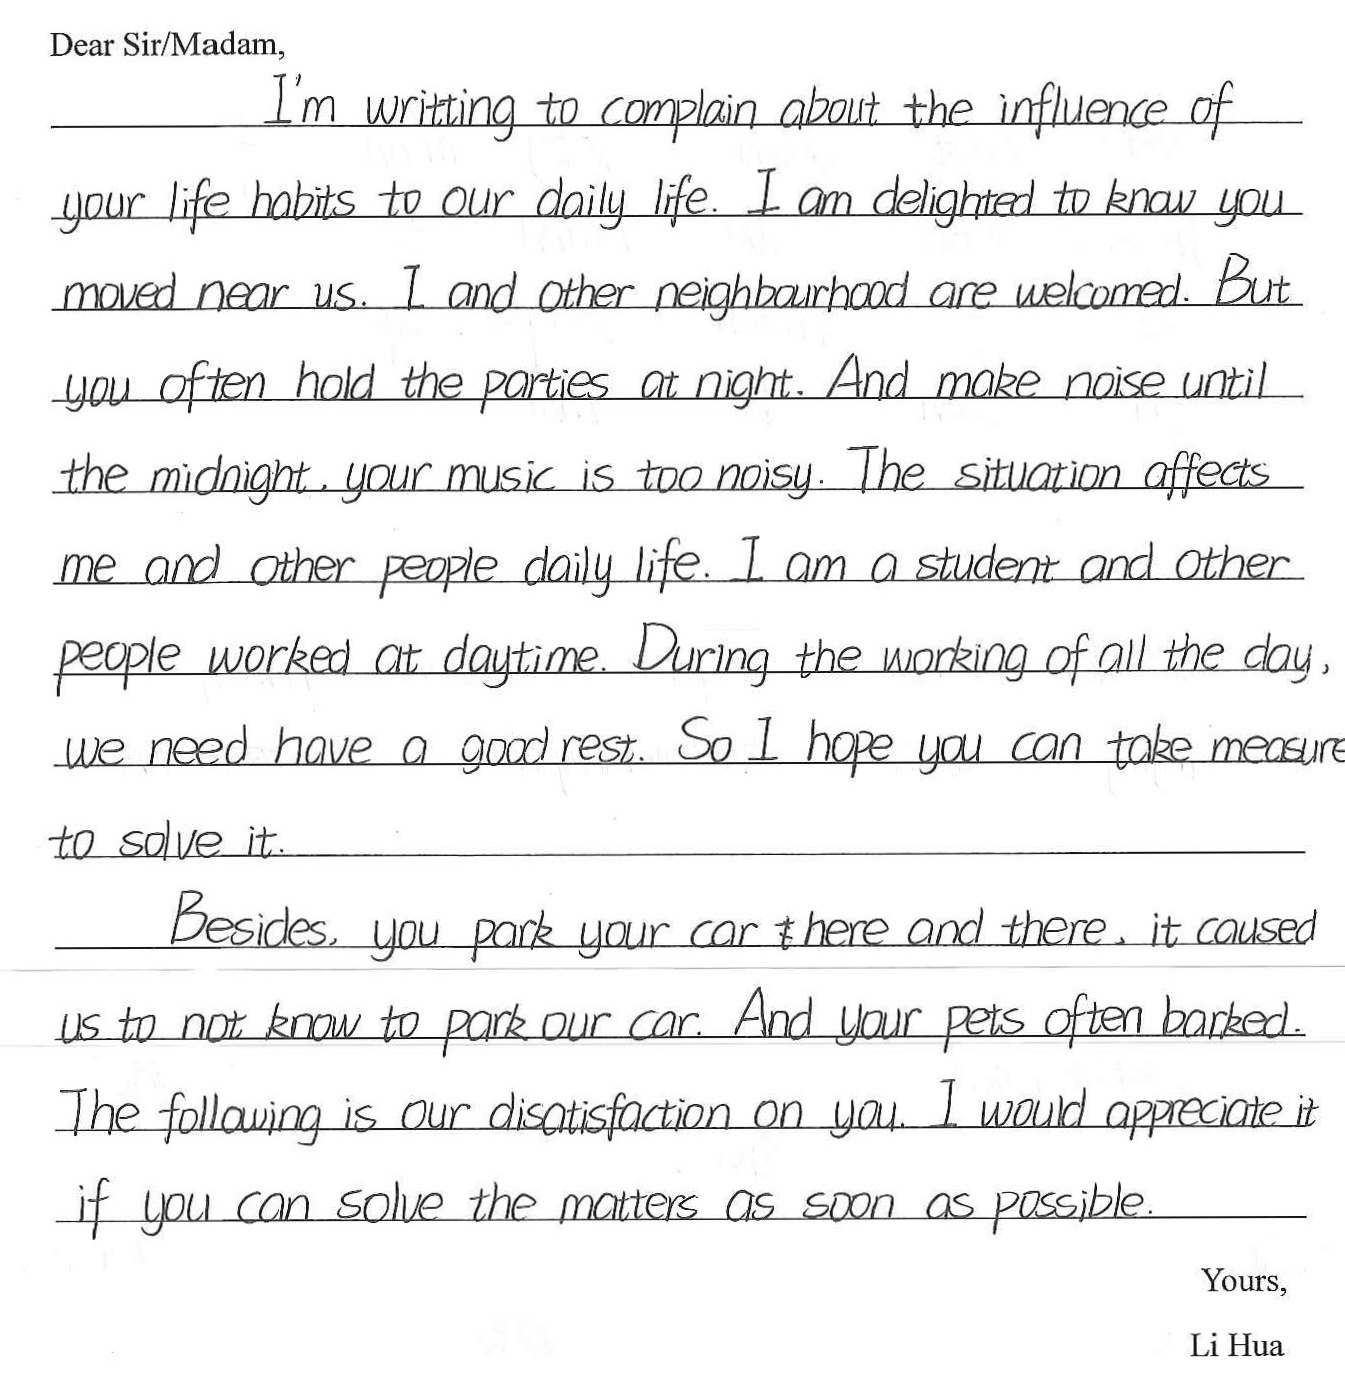 Dear Sir/Madam,
I'm writting to complain about the influence of
your life habits to our daily life. I am delighted to know you
moved near us. I and other neighbourhood are welcomed. But
you often hold the parties at night. And make noise until
the midnight, your music is too noisy. The situation affects
me and other people daily life. I am a student and other
people worked at daytime. During the working of all the day,
we need have a good rest. So I hope you can take measure
to solve it.
Besides, you park your car here and there, it caused
us to not know to park our car. And your pets often barked.
The following is our disatisfaction on you. I would appreciate it
if you can solve the matters as soon as possible.
Yours,
Li Hua